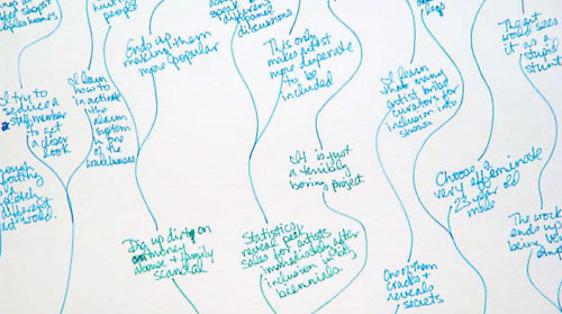 people
discussions
Ends up them
making them
more popular
This only
makes artist
more desperate
to be
included
The art
world sees
it as
stupid
stunt
I try to
seduce a
staff member
to get
a closer
look
I learn
how to
inactivate
the
alarm
system
in one
of the
warehouses
I learn
that many
artist bribe
curators for
inclusion into
shows
It is just
a terribly
boring project
Choose a
very effeminate
23 year old
male
different
art world.
Dig up dirt on
money
abuse + family
scandal
Statistics
reveal peak
sales for artists
immediately after
inclusion in
biennials.
One of them
cracks +
reveals
secrets
The work
ends up
being